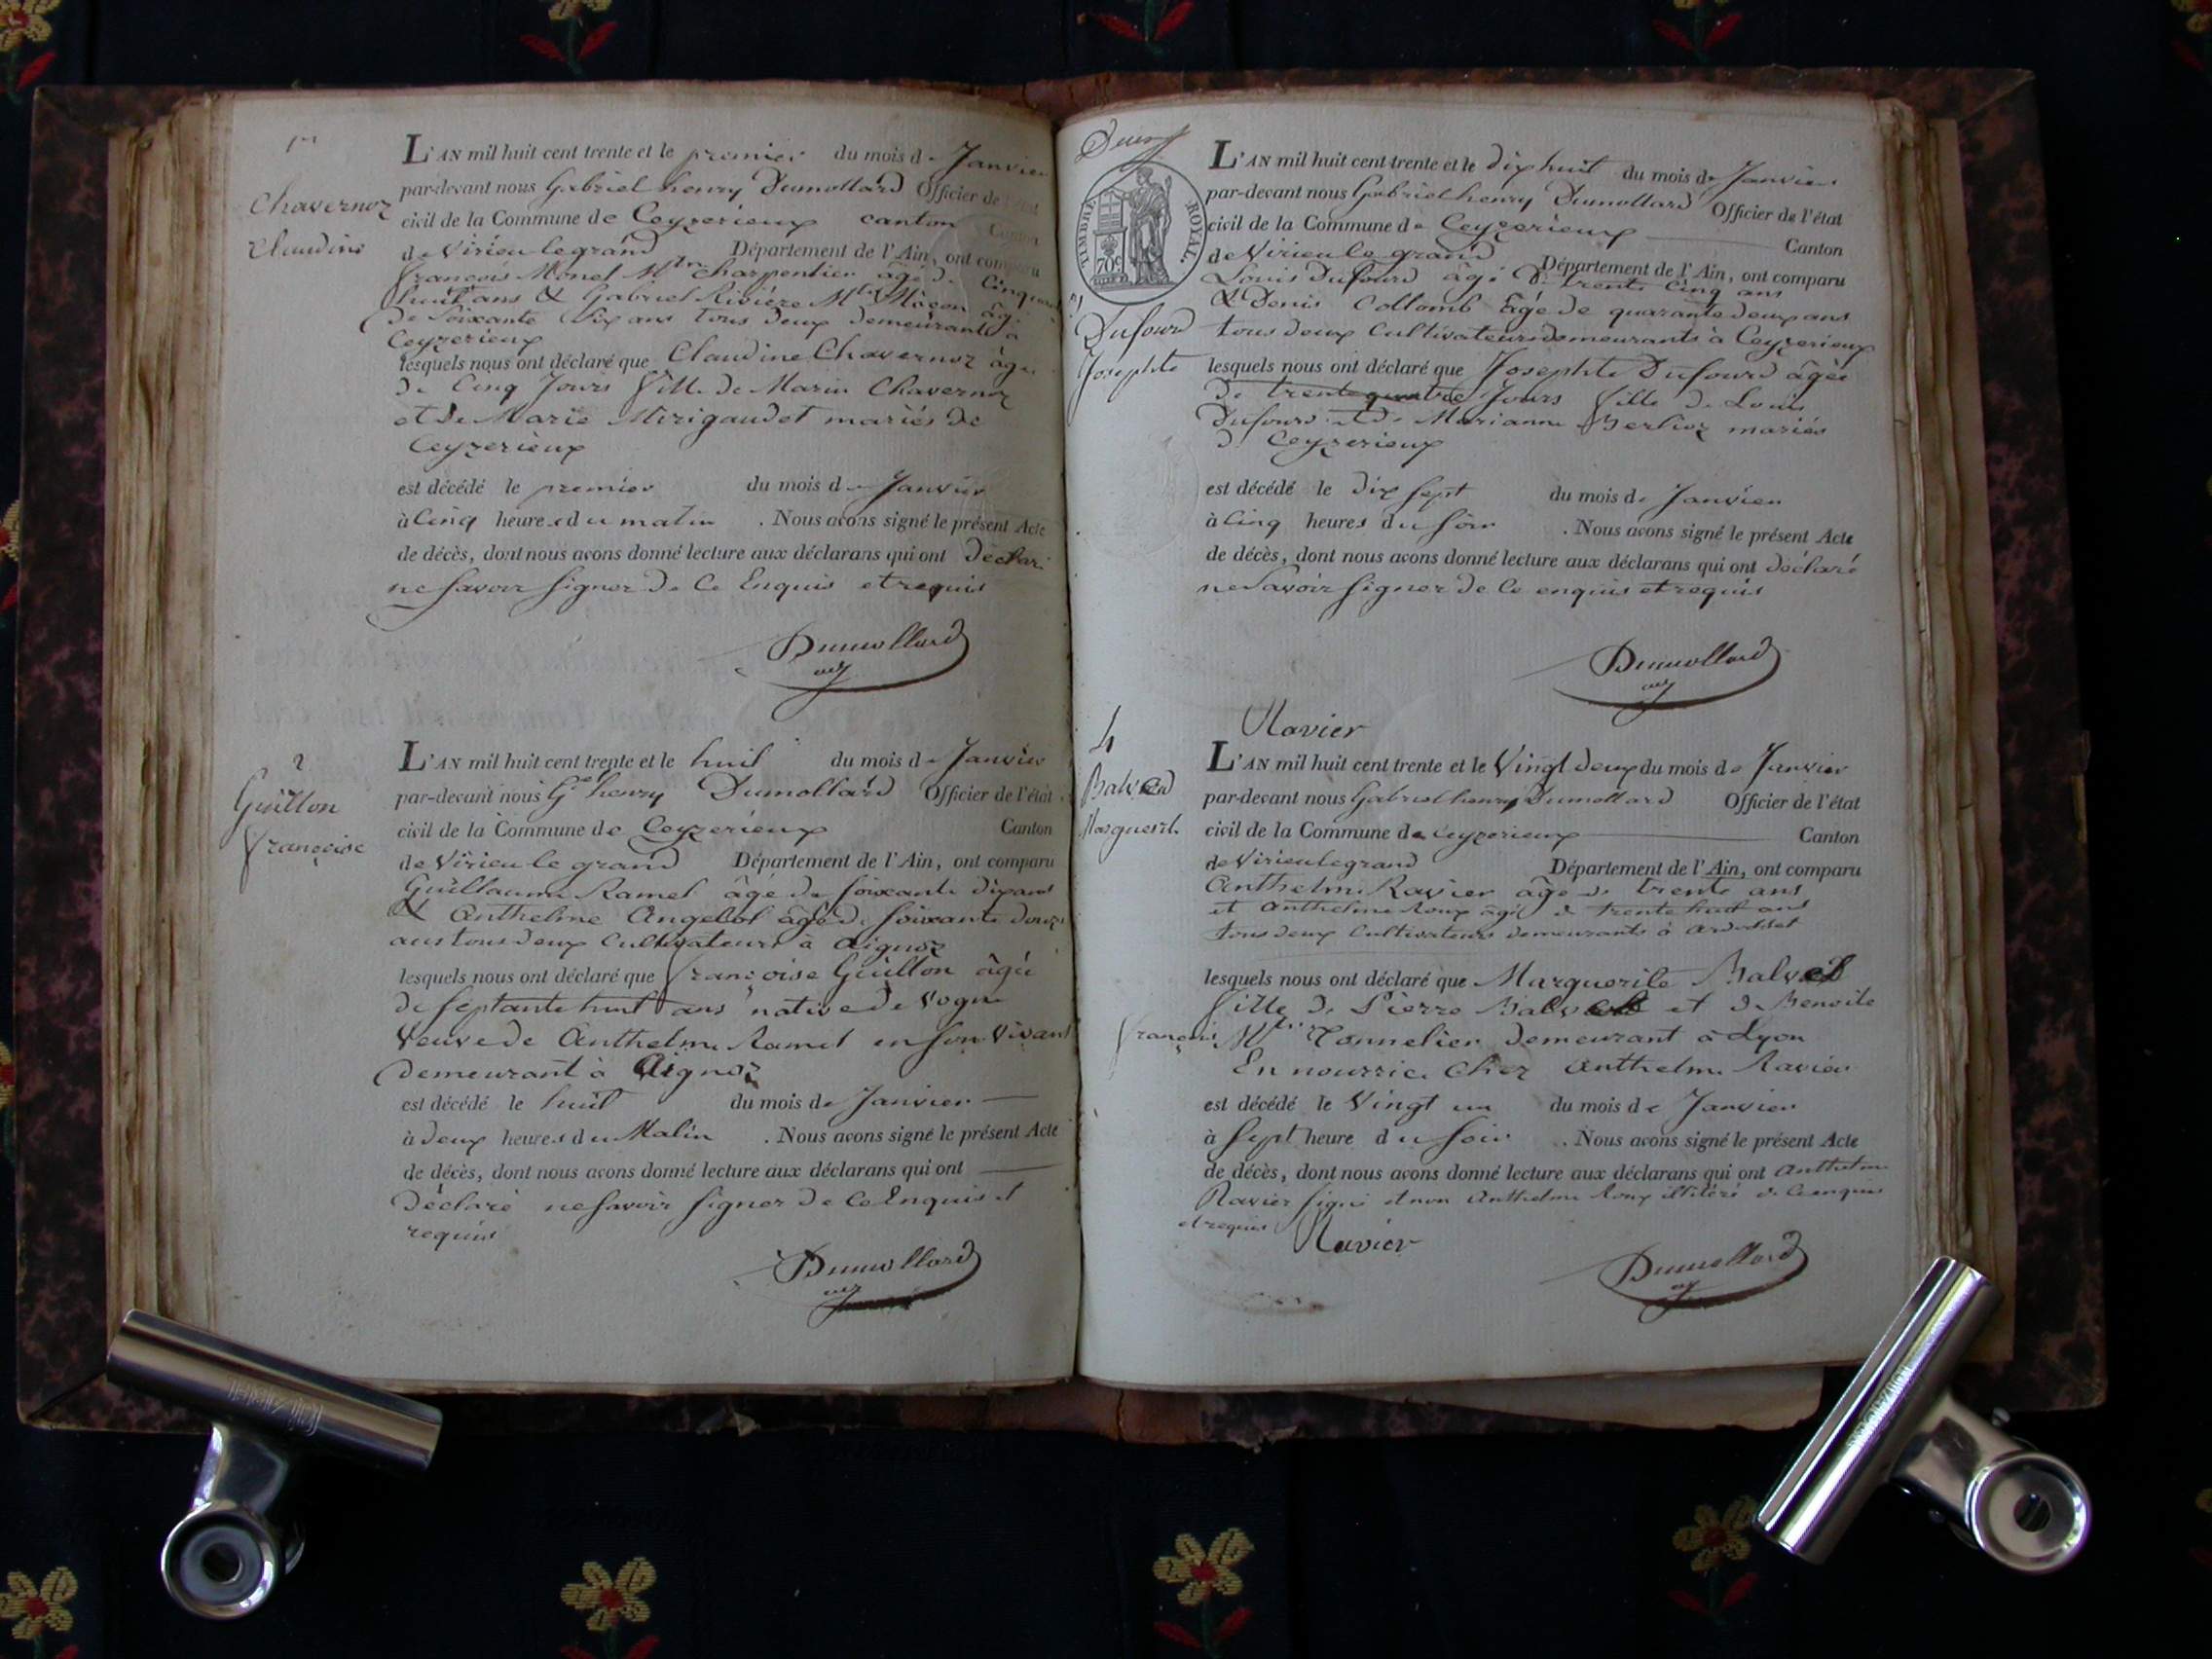 1er
Chavernoz
Claudine
L'AN mil huit cent trente et le premier du mois de Janvier
par-devant nous Gabriel henry Dumollard Officier de l'état
civil de la Commune de Ceyzerieux canton Canton
de Virieu le grand Département de l'Ain, ont comparu
françois Monet Mtre charpentier âgé de Cinquante
huit ans & Gabriel Rivière Mtre Maçon âgé
de soixante Six ans tous deux demeurants à
Ceyzerieux
lesquels nous ont déclaré que Claudine Chavernoz âgée
de Cinq Jours fille de Marin Chavernoz
et de Marie Mirigaudet mariés de
Ceyzerieux
est décédé le premier du mois de Janvier
à Cinq heures du matin . Nous avons signé le présent Acte
de décès, dont nous avons donné lecture aux déclarans qui ont déclaré
ne savoir signer de Ce Enquis et requis
Dumollard
2
Guillon
françoise
L'AN mil huit cent trente et le huit du mois de Janvier
par-devant nous Gel henry Dumollard Officier de l'état
civil de la Commune de Ceyzerieux Canton
de Virieu le grand Département de l'Ain, ont comparu
Guillaume Ramel âgé de soixante dix ans
& Anthelme Angelot âgé de soixante douze
ans tous deux Cultivateurs à Aignoz
lesquels nous ont déclaré que françoise Guillon âgée
de septante huit ans native de Vogne
Veuve de Anthelme Ramel en son Vivant
demeurant à Aignoz
est décédé le huit du mois de Janvier
à deux heures du Matin . Nous avons signé le présent Acte
de décès, dont nous avons donné lecture aux déclarans qui ont
Déclaré ne savoir signer de Ce Enquis et
requis
Dumollard
Deux
TIMBRE ROYAL
70c
3
Dufourd
Josephte
L'AN mil huit cent trente et le dix huit du mois de Janvier
par-devant nous Gabriel henry Dumollard Officier de l'état
civil de la Commune de Ceyzerieux Canton
de Virieu le grand Département de l'Ain, ont comparu
Louis Dufourd âgé De trente Cinq ans
& Denis Collomb âgé de quarante deux ans
tous deux Cultivateurs demeurants à Ceyzerieux
lesquels nous ont déclaré que Josephte Dufourd âgée
de trente quatre Jours fille de Louis
Dufourd et de Marianne Berlioz mariés
de Ceyzerieux
est décédé le dix sept du mois de Janvier
à Cinq heures du soir . Nous avons signé le présent Acte
de décès, dont nous avons donné lecture aux déclarans qui ont déclaré
ne Savoir signer de Ce enquis et requis
Dumollard
Ravier
4
Marguerite
L'AN mil huit cent trente et le Vingt deux du mois de Janvier
par-devant nous Gabriel henry Dumollard Officier de l'état
civil de la Commune de Ceyzerieux Canton
de Virieu le grand Département de l'Ain, ont comparu
Anthelme Ravier âgé de trente ans
et Anthelme Roux âgé de trente huit ans
tous deux Cultivateurs demeurants à Ardosset
lesquels nous ont déclaré que Marguerite
fille de Pierre et de Benoite
françois Mtre Tonnelier demeurant à Lyon
En nourrice Chez Anthelme Ravier
est décédé le Vingt un du mois de Janvier
à sept heure du soir . Nous avons signé le présent Acte
de décès, dont nous avons donné lecture aux déclarans qui ont Anthelme
Ravier signé et non Anthelme Roux illitéré de Ce enquis
et requis
Ravier
Dumollard